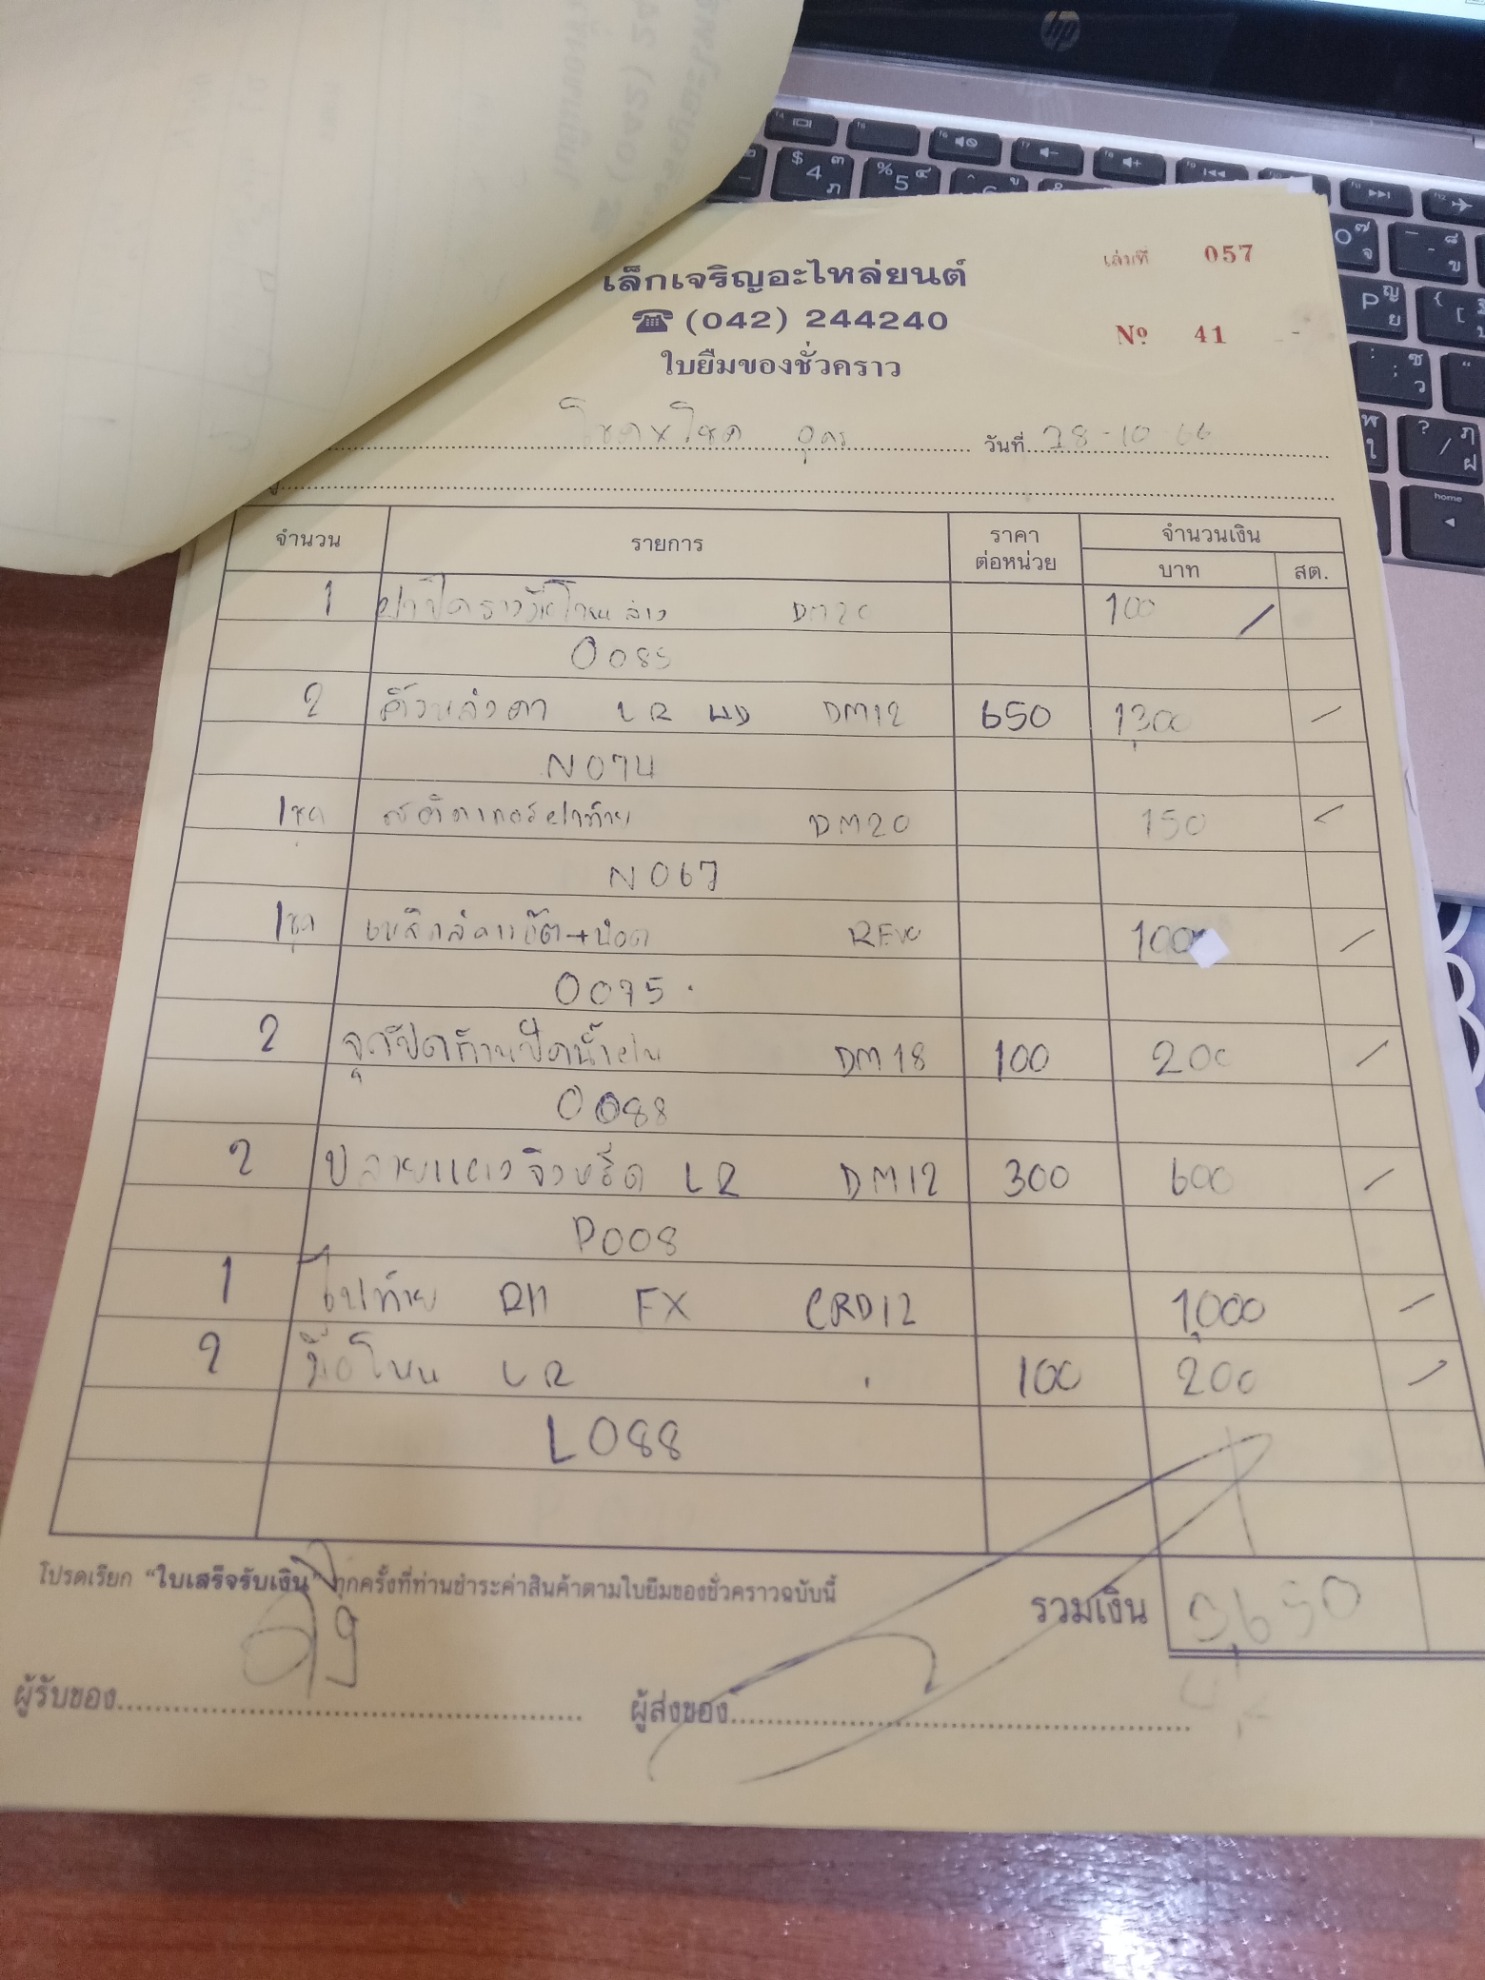 เล่มที่ 057
เล็กเจริญอะไหล่ยนต์
☎ (042) 244240
Nº 41
ใบยืมของชั่วคราว
โชคxโชค อุดร วันที่ 28-10-66
จำนวน รายการ ราคาต่อหน่วย จำนวนเงิน
บาท สต.
1 ฝาปิดรางหัวโถยน ล่าง DM20 100
0085
2 คิ้วหลังคา LR 4D DM12 650 1,300
N074
1ชุด สติกเกอร์ฝาท้าย DM20 150
N067
1ชุด REVO 100
0075
2 จุกปิดก้านปัดน้ำฝน DM18 100 200
0088
2 ปลายแผงจิ้งหรีด LR DM12 300 600
P008
1 ไฟท้าย RH FX CRD12 1,000
2 มือโหน LR 100 200
L088
โปรดเรียก "ใบเสร็จรับเงิน" ทุกครั้งที่ท่านชำระค่าสินค้าตามใบยืมของชั่วคราวฉบับนี้
รวมเงิน 3,650
ผู้รับของ ผู้ส่งของ